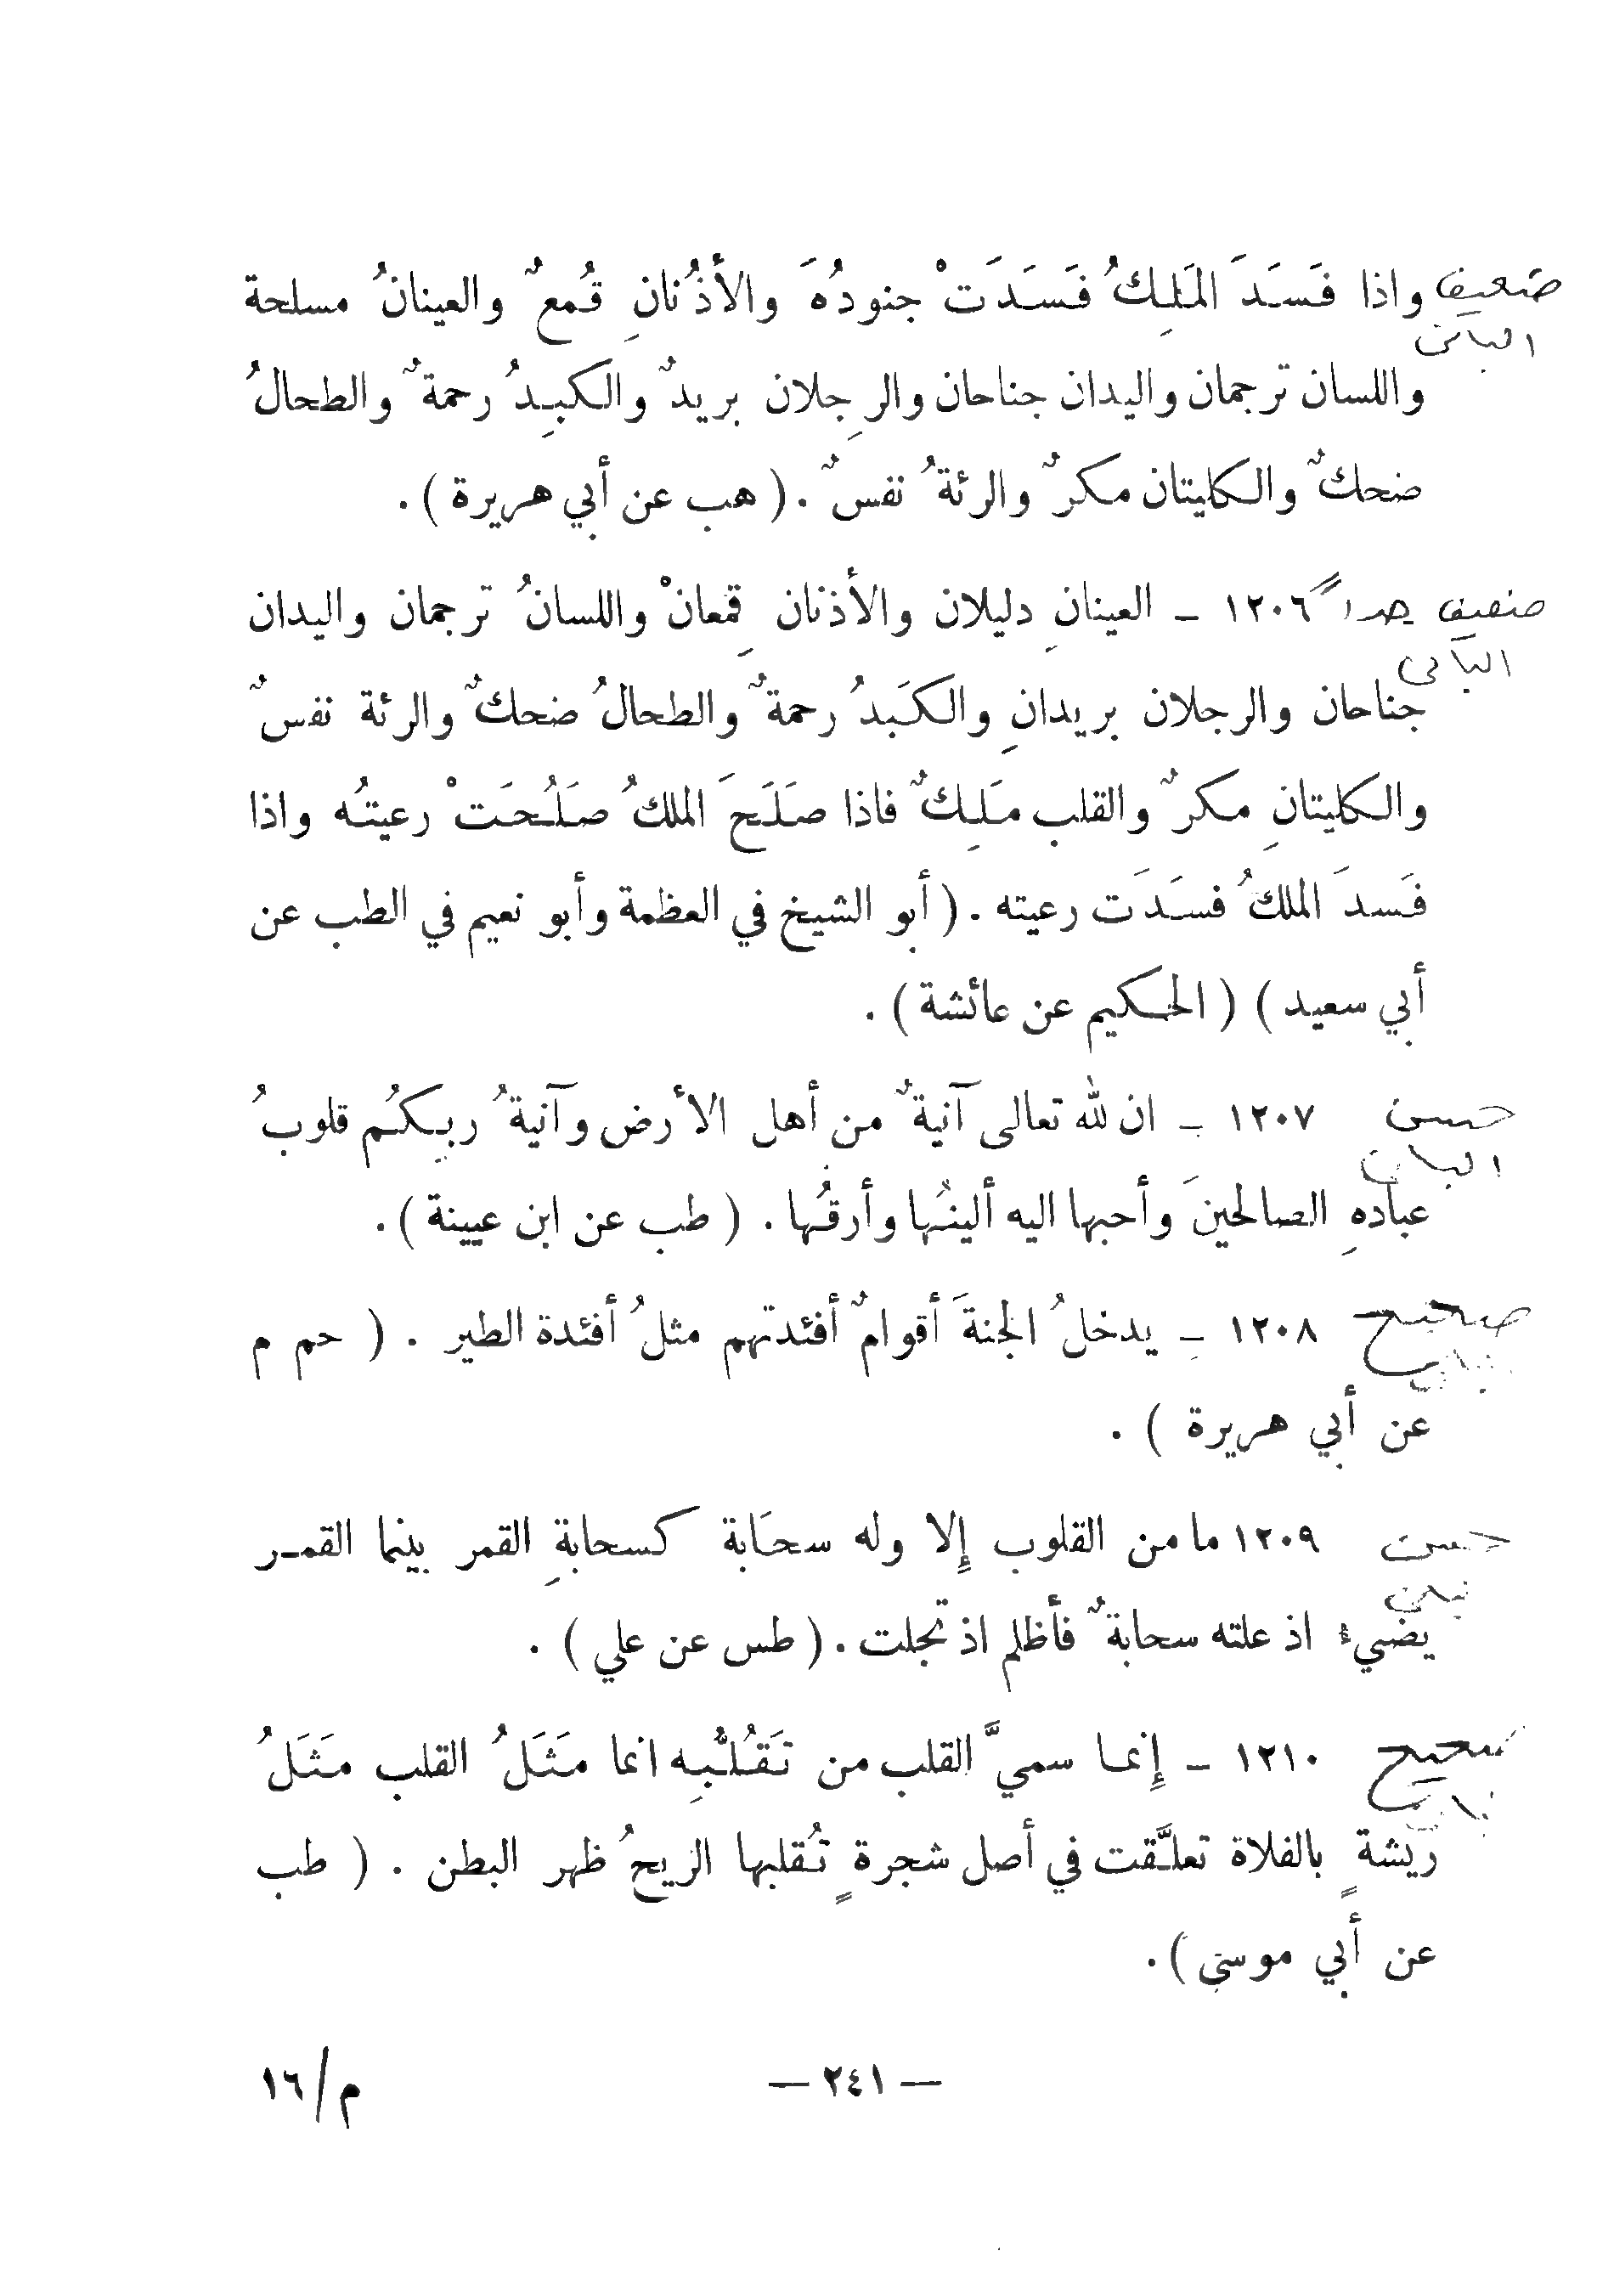 ضعيف واذا فَسَدَ المَلِكُ فَسَدَتْ جنودُهَ والأذُنانِ قُمعٌ والعينانُ مسلحة
الباني
واللسان ترجمان واليدان جناحان والرِجلان بريدٌ والكبِدُ رحمةٌ والطحالُ
ضحكٌ والكليتان مكرٌ والرئةُ نفسٌ . ( هب عن أبي هريرة ) .
ضعيف جداً ١٢٠٦ ـ العينانِ دليلان والأذنان قِمعانْ واللسانُ ترجمان واليدان
الباني
جناحان والرجلان بريدانِ والكَبدُ رحمةٌ والطحالُ ضحكٌ والرئة نفسٌ
والكليتانِ مكرٌ والقلب مَلِكٌ فاذا صَلَحَ الملكُ صَلُحَتْ رعيتُه واذا
فَسدَ الملكُ فسَدَت رعيته . ( أبو الشيخ في العظمة وأبو نعيم في الطب عن
أبي سعيد ) ( الحكيم عن عائشة ) .
حسن ١٢٠٧ ـ ان لله تعالى آنيةٌ من أهل الأرض وآنيةُ ربِكُم قلوبُ
الباني
عبادهِ الصالحينَ وأحبها اليه ألينُها وأرقُها . ( طب عن ابن عيينة ) .
صحيح ١٢٠٨ ـ يدخلُ الجنةَ أقوامٌ أفئدتهم مثلُ أفئدة الطير . ( حم م
عن أبي هريرة ) .
حسن ١٢٠٩ ما من القلوب إِلا وله سحَابة كسحابةِ القمر بينما القمـر
يضيء اذ علته سحابةٌ فأظلم اذ تجلت . ( طس عن علي ) .
صحيح ١٢١٠ ـ إِنما سميَّ القلب من تَقُلُّبِه انما مَثَلُ القلب مَثَلُ
ريشةٍ بالفلاة تعلَّقت في أصل شجرةٍ تُقلبها الريحُ ظهر البطن . ( طب
عن أبي موسى ) .
— ٢٤١ —
م/١٦